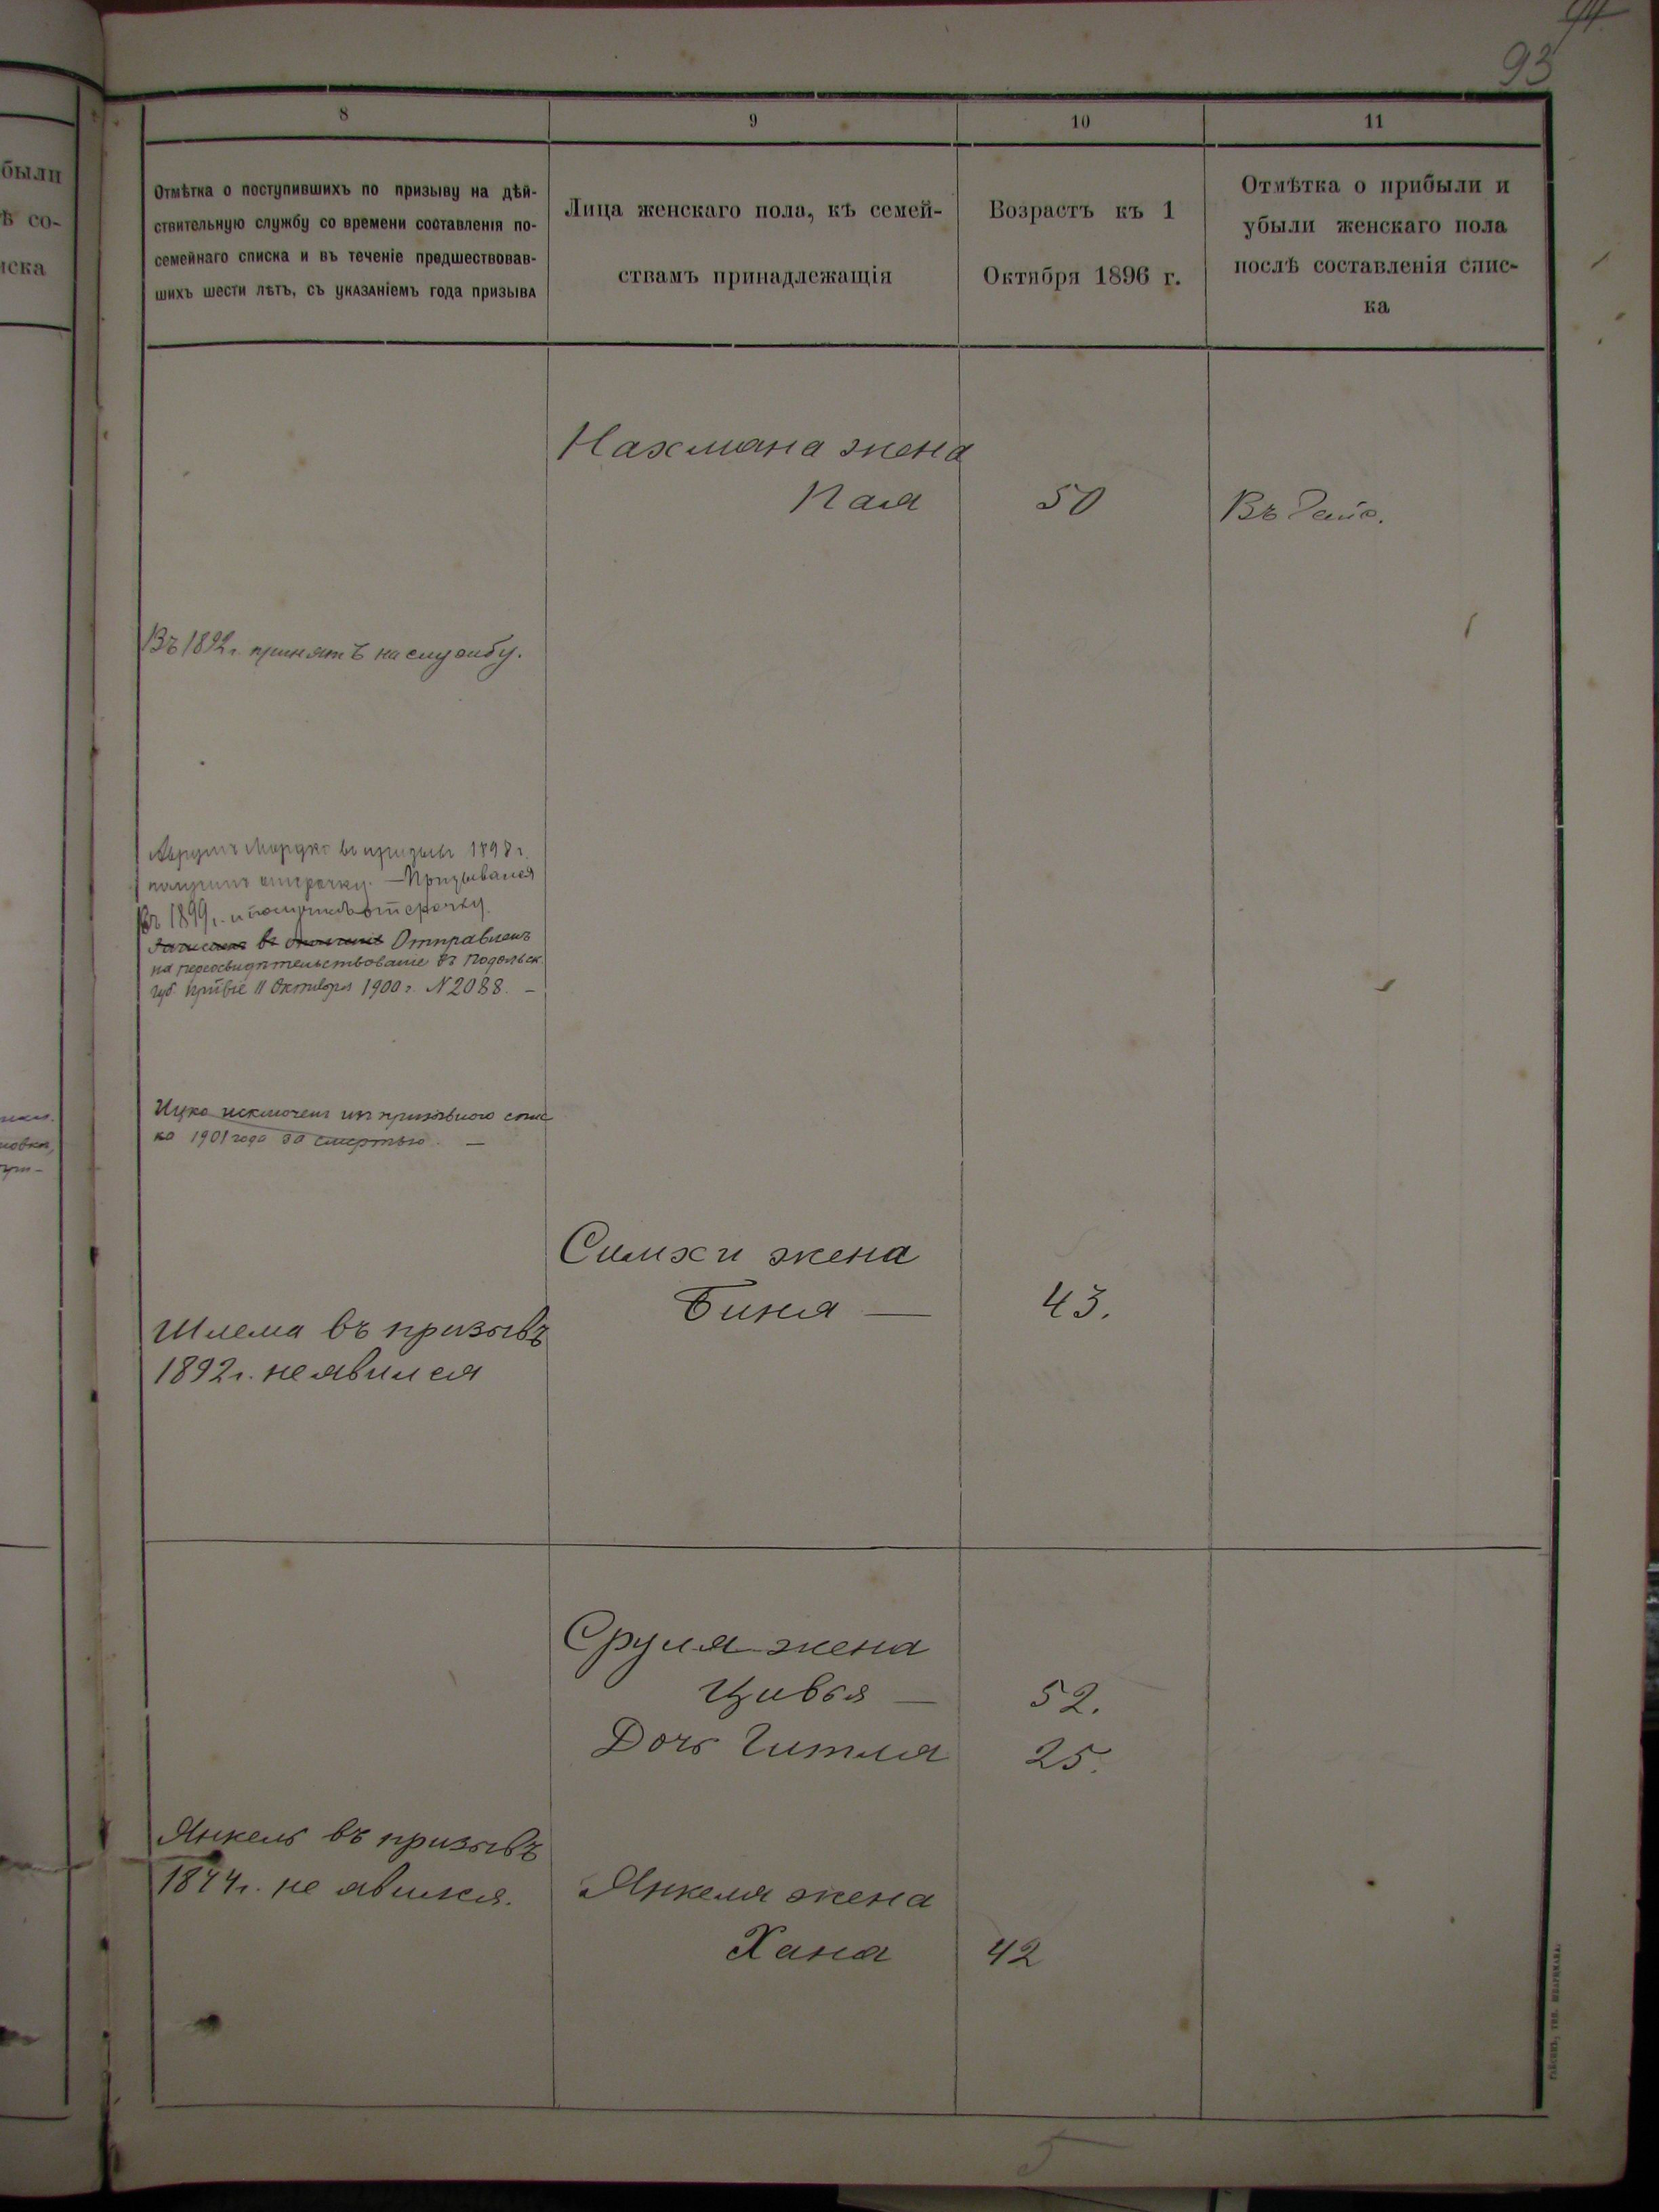 93
8
9
10
11
были
ѣ со-
иска
Отмѣтка о поступившихъ по призыву на дѣй-
ствительную службу со времени составленія по-
семейнаго списка и въ теченіе предшествовав-
шихъ шести лѣтъ, съ указаніемъ года призыва
Лица женскаго пола, къ семей-
ствамъ принадлежащія
Возрастъ къ 1
Октября 1896 г.
Отмѣтка о прибыли и
убыли женскаго пола
послѣ составленія спис-
ка
Нахмана жена
Пая 50 Въ
Въ 1892 г. принятъ на службу.
Мордко въ призывъ 1898 г.
получилъ отсрочку. — Призывался
Въ 1899 г. и получилъ отсрочку.
Отправленъ
на переосвидѣтельствованіе въ Подольск.
губ. 11 Октября 1900 г. N 2088. —
Ицко исключенъ изъ призывного спис
ка 1901 года за смертью. —
Симхи жена
Биня — 43.
Шлема въ призывъ
1892 г. не явился
Сруля жена
Цивья — 52.
Дочь Гитля 25.
Янкель въ призывъ
1874 г. не явился.
Янкеля жена
Хана 42
5